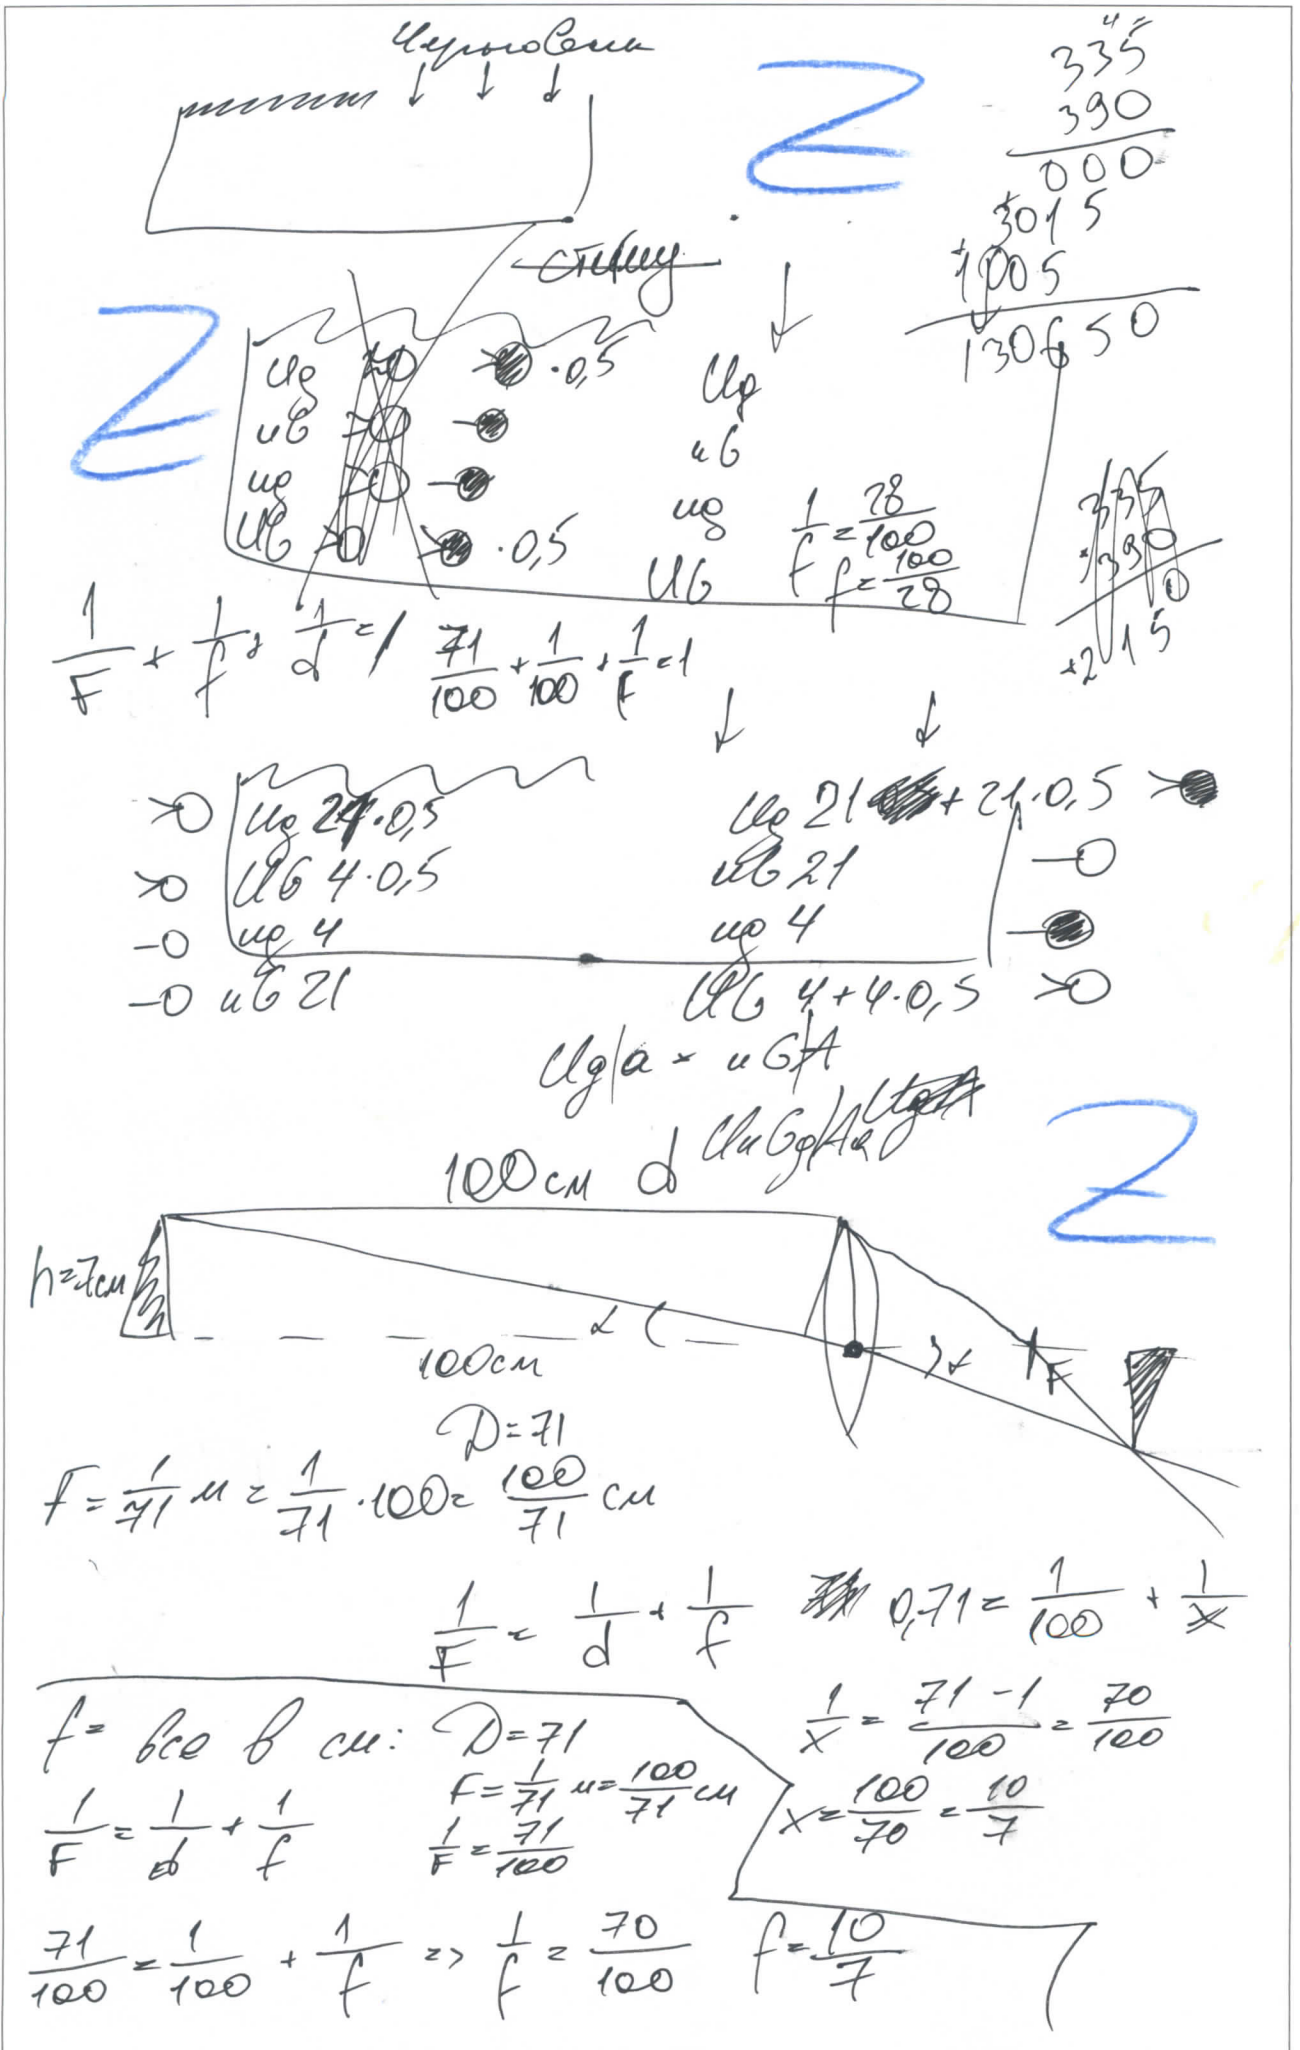 Черновик
335
390
000
3015
1005
130650
Z
стенку
Z
Цд
цб
цд
Цб
·0,5
·0,5
Цд
цб
цд
Цб
1/f = 28/100
f = 100/28
1/F + 1/f + 1/d = 1
71/100 + 1/100 + 1/f = 1
Цд 21·0,5
Цб 4·0,5
цд 4
цб 21
Цд 21 + 21·0,5
цб 21
цд 4
Цб 4+4·0,5
Цд/а × цб/А
100 см d
Z
h=7см
α
100см
α
F
D=71
F = 1/71 м = 1/71 · 100 = 100/71 см
1/F = 1/d + 1/f
0,71 = 1/100 + 1/x
1/x = (71-1)/100 = 70/100
x = 100/70 = 10/7
f = все в см: D=71
F = 1/71 м = 100/71 см
1/F = 1/d + 1/f
1/F = 71/100
71/100 = 1/100 + 1/f => 1/f = 70/100
f = 10/7